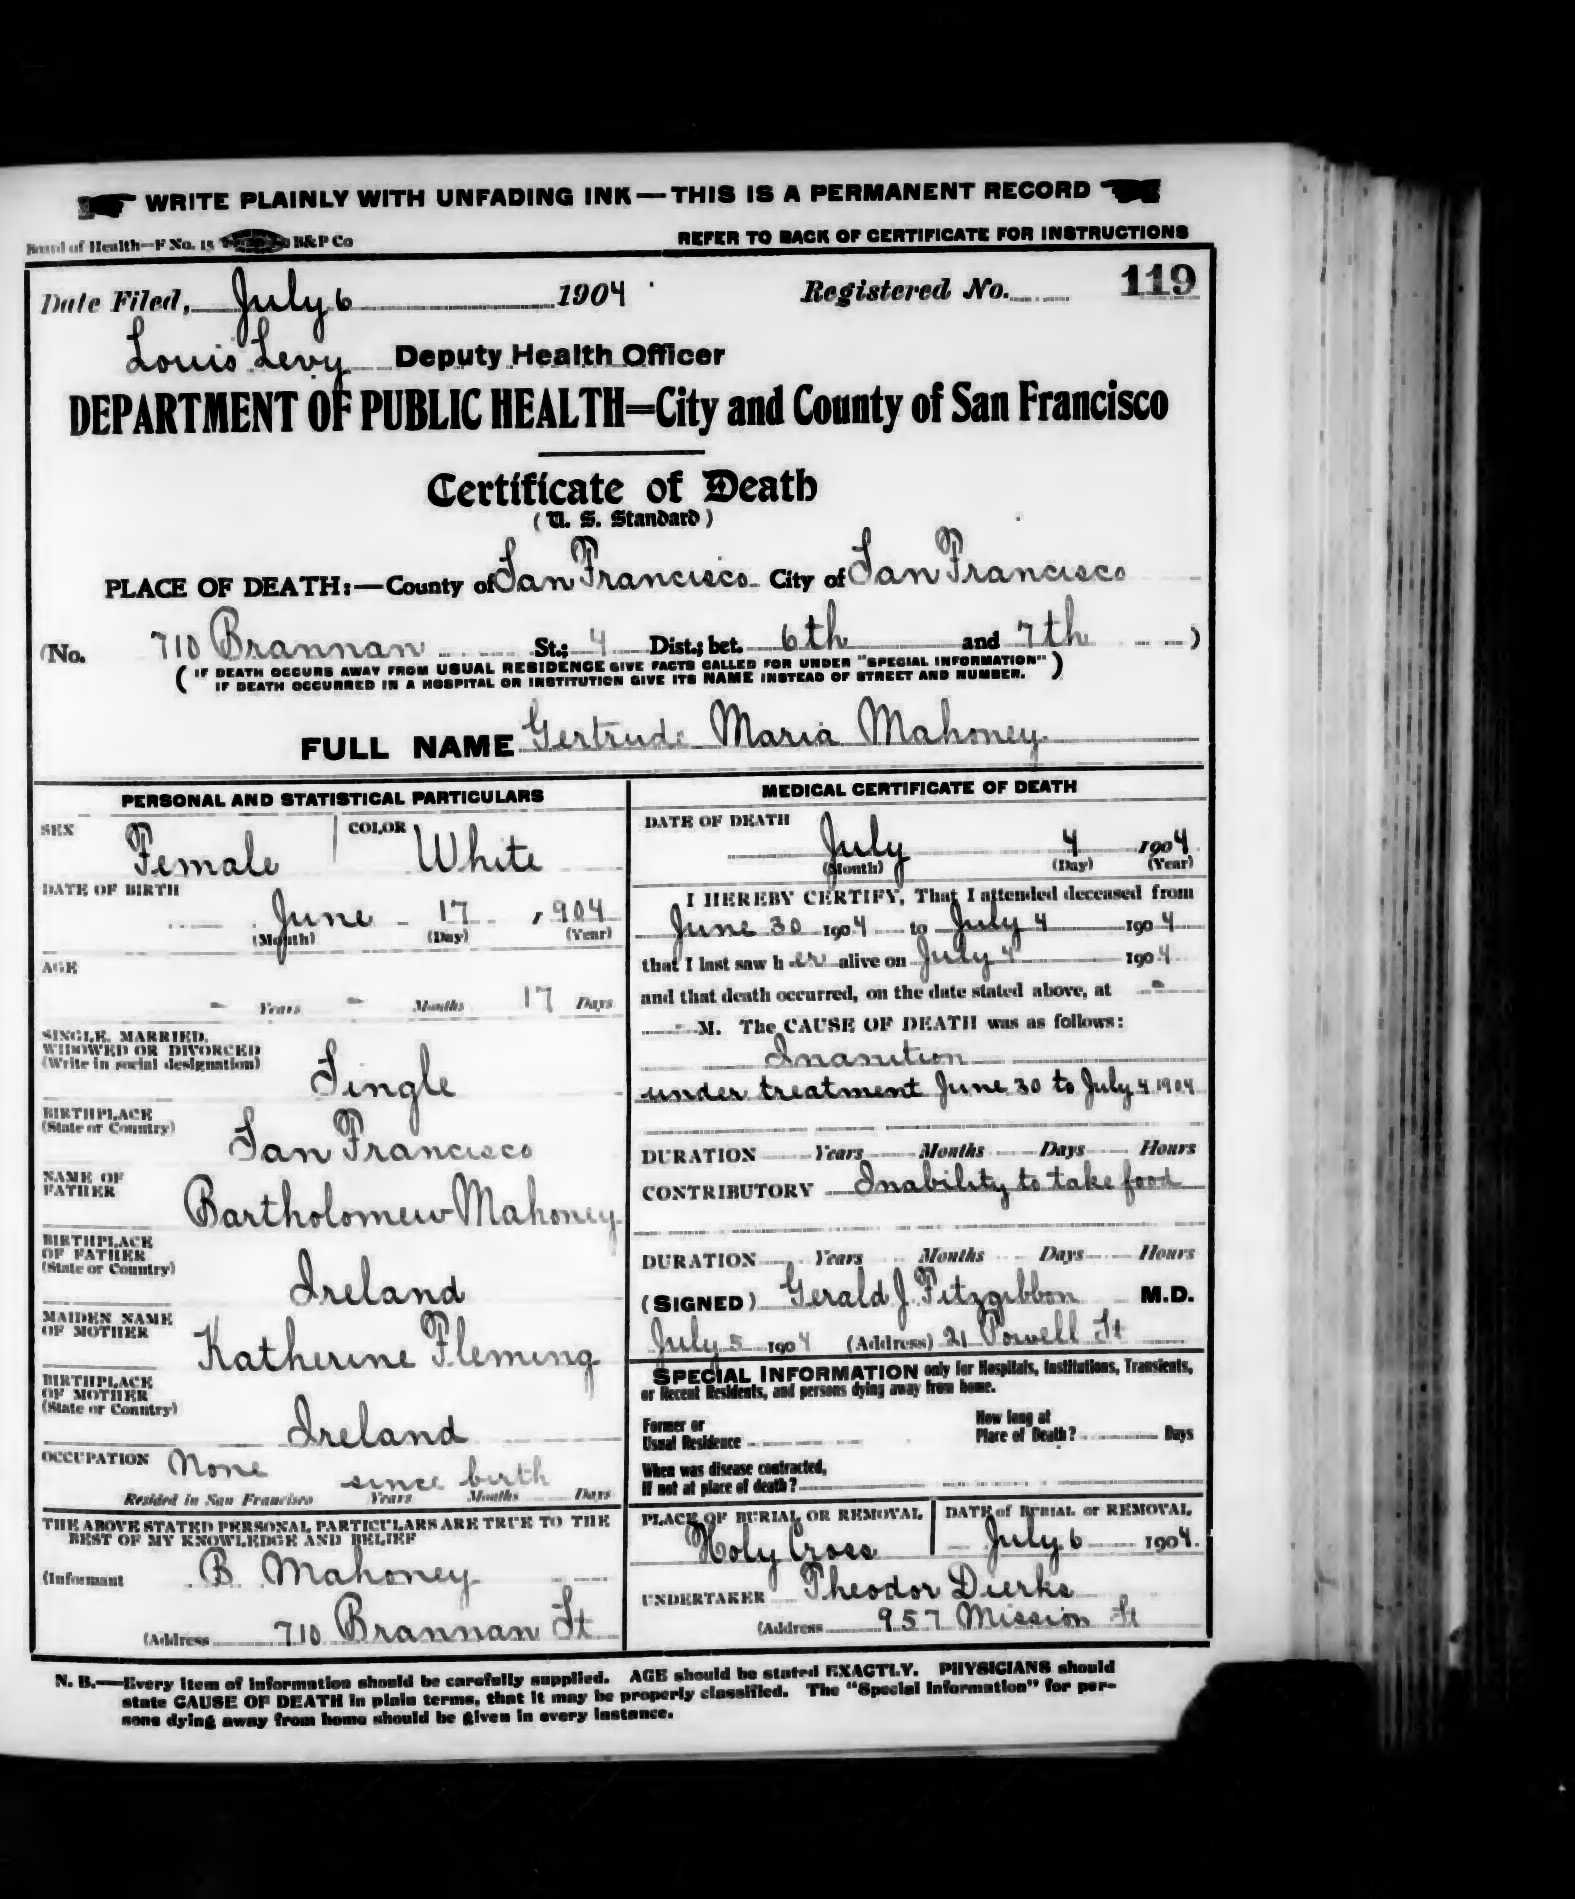 WRITE PLAINLY WITH UNFADING INK — THIS IS A PERMANENT RECORD
Board of Health—F No. 15 B&P Co
REFER TO BACK OF CERTIFICATE FOR INSTRUCTIONS
Date Filed, July 6 1904 Registered No. 119
Louis Levy Deputy Health Officer
DEPARTMENT OF PUBLIC HEALTH=City and County of San Francisco
Certificate of Death
(U. S. Standard)
PLACE OF DEATH:—County of San Francisco City of San Francisco
(No. 710 Brannan St.; 4 Dist.; bet. 6th and 7th )
( IF DEATH OCCURS AWAY FROM USUAL RESIDENCE GIVE FACTS CALLED FOR UNDER "SPECIAL INFORMATION" )
IF DEATH OCCURRED IN A HOSPITAL OR INSTITUTION GIVE ITS NAME INSTEAD OF STREET AND NUMBER.
FULL NAME Gertrude Maria Mahoney
PERSONAL AND STATISTICAL PARTICULARS
SEX Female COLOR White
DATE OF BIRTH
June 17 1904
(Month) (Day) (Year)
AGE
- Years - Months 17 Days
SINGLE, MARRIED,
WIDOWED OR DIVORCED
(Write in social designation)
Single
BIRTHPLACE
(State or Country)
San Francisco
NAME OF
FATHER
Bartholomew Mahoney
BIRTHPLACE
OF FATHER
(State or Country)
Ireland
MAIDEN NAME
OF MOTHER
Katherine Fleming
BIRTHPLACE
OF MOTHER
(State or Country)
Ireland
OCCUPATION None
since birth
Resided in San Francisco Years Months Days
THE ABOVE STATED PERSONAL PARTICULARS ARE TRUE TO THE
BEST OF MY KNOWLEDGE AND BELIEF
(Informant B Mahoney
(Address 710 Brannan St
MEDICAL CERTIFICATE OF DEATH
DATE OF DEATH
July 4 1904
(Month) (Day) (Year)
I HEREBY CERTIFY, That I attended deceased from
June 30 1904 to July 4 1904
that I last saw h er alive on July 4 1904
and that death occurred, on the date stated above, at -
- M. The CAUSE OF DEATH was as follows:
Inanition
under treatment June 30 to July 4 1904
DURATION Years Months Days Hours
CONTRIBUTORY Inability to take food
DURATION Years Months Days Hours
(SIGNED) Gerald J. Fitzgibbon M.D.
July 5 1904 (Address) 21 Powell St
SPECIAL INFORMATION only for Hospitals, Institutions, Transients,
or Recent Residents, and persons dying away from home.
Former or
Usual Residence
How long at
Place of Death? Days
When was disease contracted,
If not at place of death?
PLACE OF BURIAL OR REMOVAL
Holy Cross
DATE of BURIAL or REMOVAL
July 6 1904.
UNDERTAKER Theodor Dierks
(Address 957 Mission St
N. B.—Every item of information should be carefully supplied. AGE should be stated EXACTLY. PHYSICIANS should
state CAUSE OF DEATH in plain terms, that it may be properly classified. The "Special Information" for per-
sons dying away from home should be given in every instance.